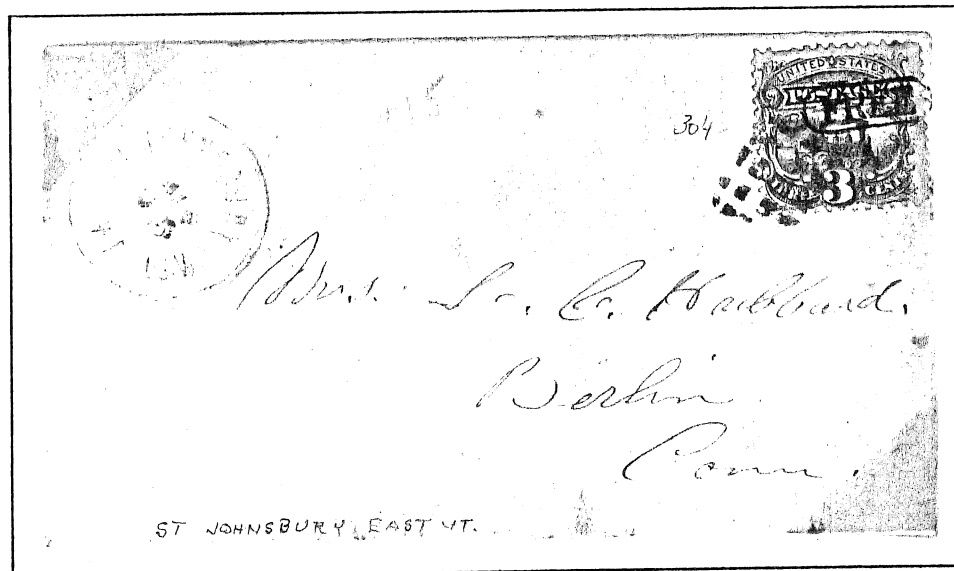 UNITED STATES
POSTAGE
FREE
304
THREE 3 CENTS
Mrs. L. C. Hubbard.
Berlin
Conn.
ST JOHNSBURY EAST VT.